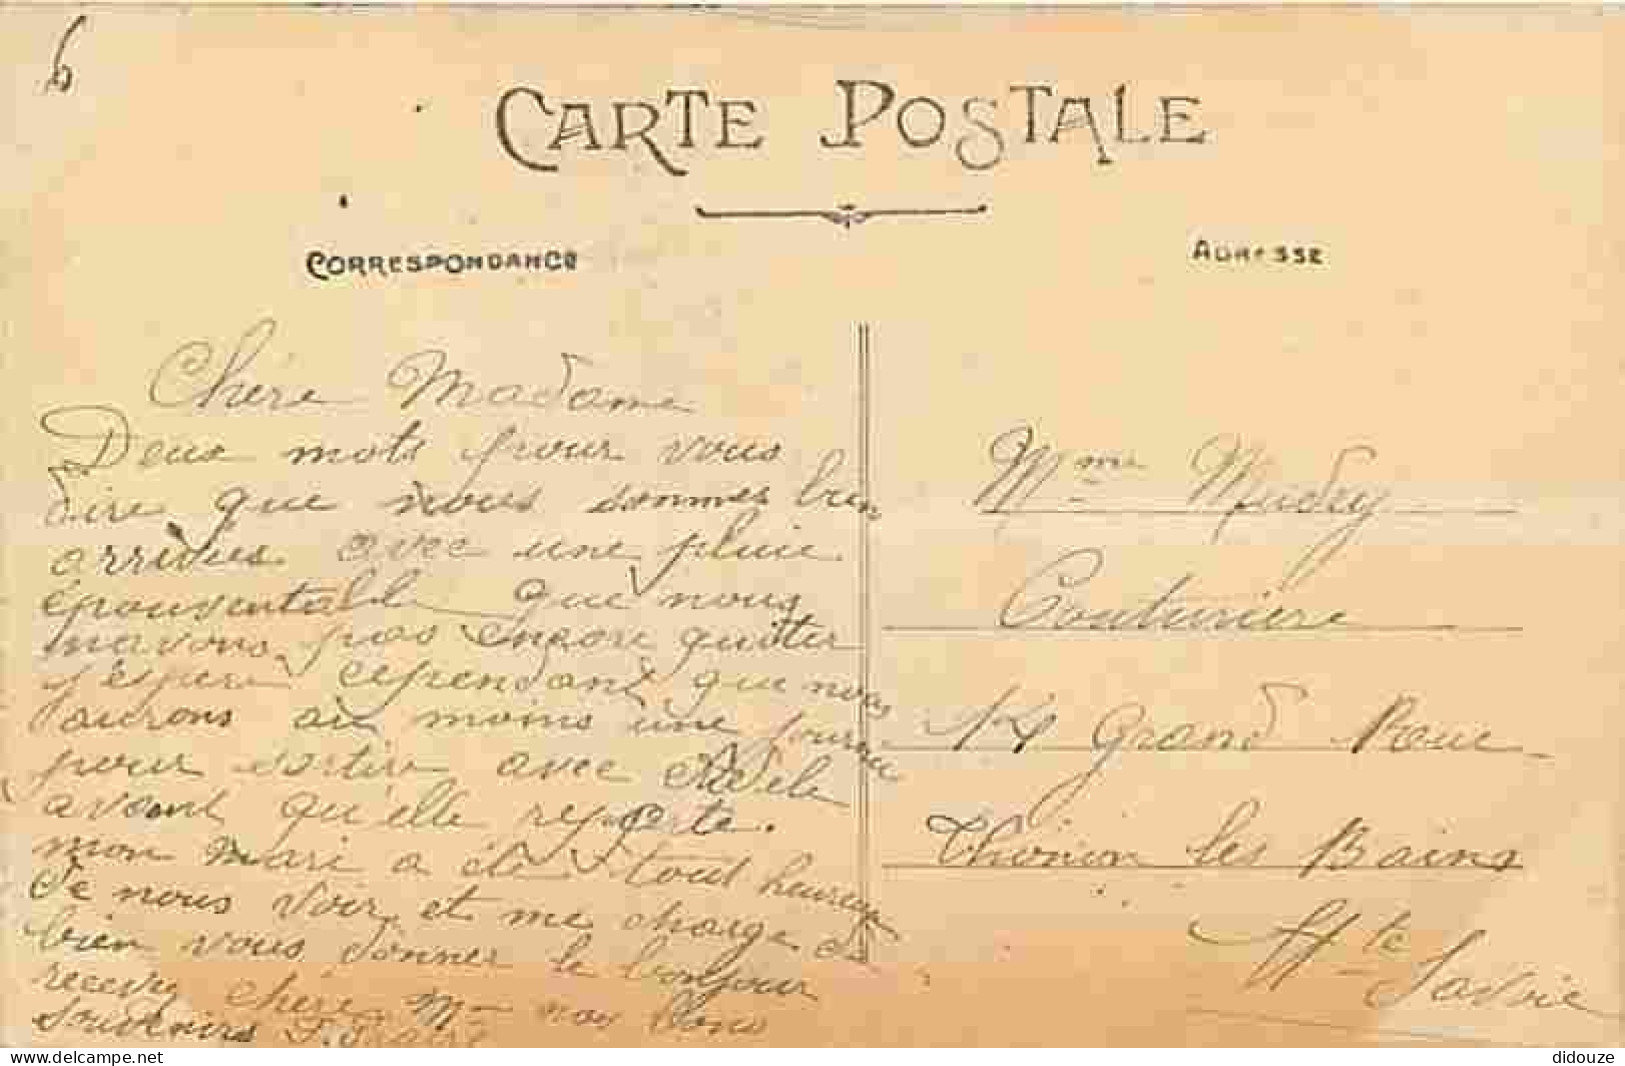 CARTE POSTALE
CORRESPONDANCE
ADRESSE
Chère Madame
Deux mots pour vous
dire que nous sommes bien
arrivées avec une pluie
épouventable que nous
navons pas encore quitter
j'espère cependant que nous
aurons au moins une journée
pour sortir avec Adèle
avant qu'elle reparte.
mon mari a été tout heureux
de nous voir et me charge de
bien vous donner le bonjour
recevez chère Mme nos bons
souvenirs
Mme Mudry
Couturière
Grand Rue
Thonon les Bains
Hte Savoie
didouze